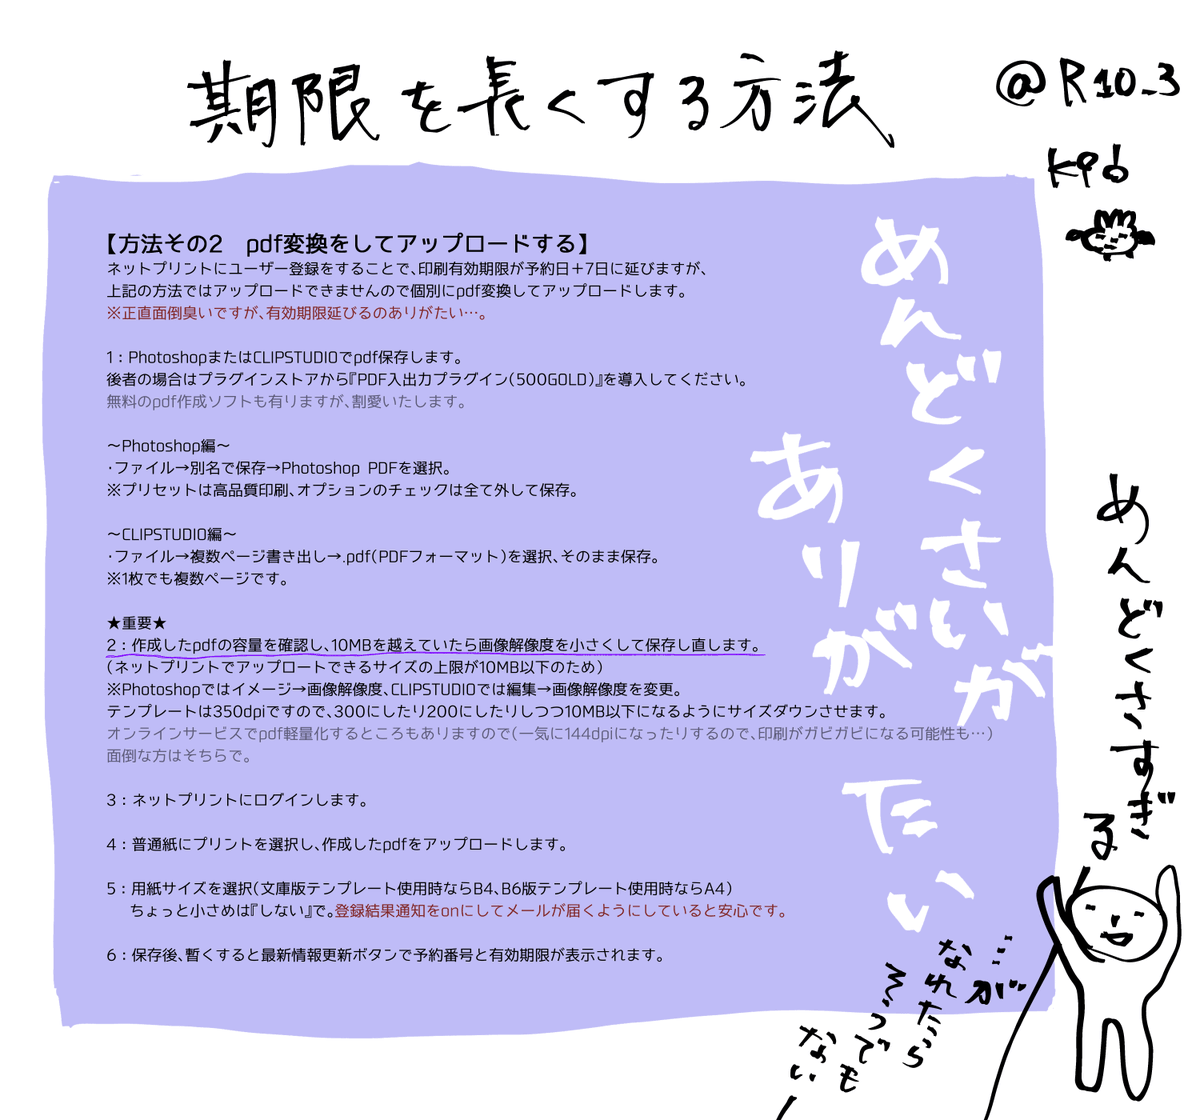 期限を長くする方法
@R10_3
kpb
【方法その2　pdf変換をしてアップロードする】
ネットプリントにユーザー登録をすることで、印刷有効期限が予約日＋7日に延びますが、
上記の方法ではアップロードできませんので個別にpdf変換してアップロードします。
※正直面倒臭いですが、有効期限延びるのありがたい…。
1：PhotoshopまたはCLIPSTUDIOでpdf保存します。
後者の場合はプラグインストアから『PDF入出力プラグイン（500GOLD）』を導入してください。
無料のpdf作成ソフトも有りますが、割愛いたします。
～Photoshop編～
・ファイル→別名で保存→Photoshop PDFを選択。
※プリセットは高品質印刷、オプションのチェックは全て外して保存。
～CLIPSTUDIO編～
・ファイル→複数ページ書き出し→.pdf（PDFフォーマット）を選択、そのまま保存。
※1枚でも複数ページです。
★重要★
2：作成したpdfの容量を確認し、10MBを越えていたら画像解像度を小さくして保存し直します。
（ネットプリントでアップロートできるサイズの上限が10MB以下のため）
※Photoshopではイメージ→画像解像度、CLIPSTUDIOでは編集→画像解像度を変更。
テンプレートは350dpiですので、300にしたり200にしたりしつつ10MB以下になるようにサイズダウンさせます。
オンラインサービスでpdf軽量化するところもありますので（一気に144dpiになったりするので、印刷がガビガビになる可能性も…）
面倒な方はそちらで。
3：ネットプリントにログインします。
4：普通紙にプリントを選択し、作成したpdfをアップロードします。
5：用紙サイズを選択（文庫版テンプレート使用時ならB4、B6版テンプレート使用時ならA4）
ちょっと小さめは『しない』で。登録結果通知をonにしてメールが届くようにしていると安心です。
6：保存後、暫くすると最新情報更新ボタンで予約番号と有効期限が表示されます。
めんどくさいが
ありがたい
めんどくさすぎる
…が
なれたら
そうでも
ない